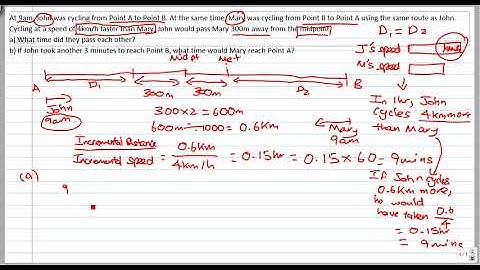 At 9am, John was cycling from Point A to Point B. At the same time, Mary was cycling from Point B to Point A using the same route as John.
Cycling at a speed of 4km/h faster than Mary, John would pass Mary 300m away from the midpoint.
a) What time did they pass each other?
b) If John took another 3 minutes to reach Point B, what time would Mary reach Point A?
D1 = D2
J's speed 4km/h
M's speed
Midpt Met
A D1 300m 300m D2 B
John
9am
Mary
9am
300×2 = 600m
600m ÷ 1000 = 0.6km
Incremental Distance
Incremental speed = 0.6km
4km/h = 0.15hr = 0.15 × 60 = 9mins
In 1hr, John
cycles 4km more
than Mary
If John cycles
0.6km more,
he would
have taken 0.6
4
= 0.15hr
= 9mins
(a)
9